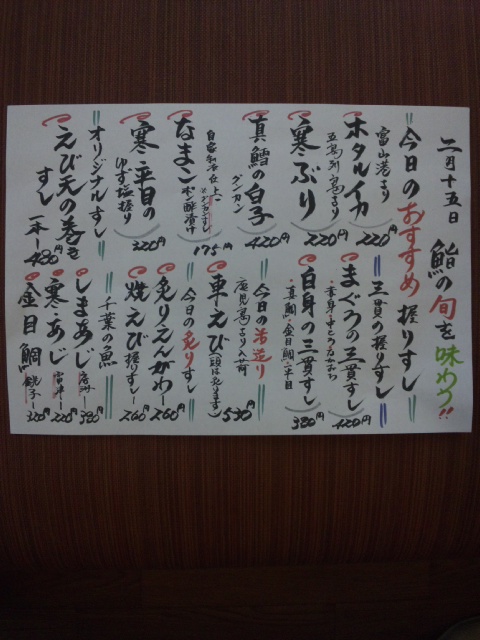 二月十五日 鮨の旬を味わう!!
今日のおすすめ握りすし
富山港より
ホタルイカ 220円
寒ぶり 220円
真鱈の白子 420円
グンカン
自家製仕上
なまこ ポン酢漬け 175円
寒平目の
ゆず塩握り 220円
オリジナルすし
えび天の巻き
すし 一本 480円
三貫の握りすし
まぐろの三貫すし 420円
白身の三貫すし 380円
・真鯛・金目鯛・平目
今日の活造り
鹿児島より入荷
車えび(頭は光ります) 530円
今日の炙りすし
炙りえんがわ 260円
焼えび 握りすし 260円
千葉の魚
しまあじ 380円
寒あじ 富津 220円
金目鯛 銚子 320円